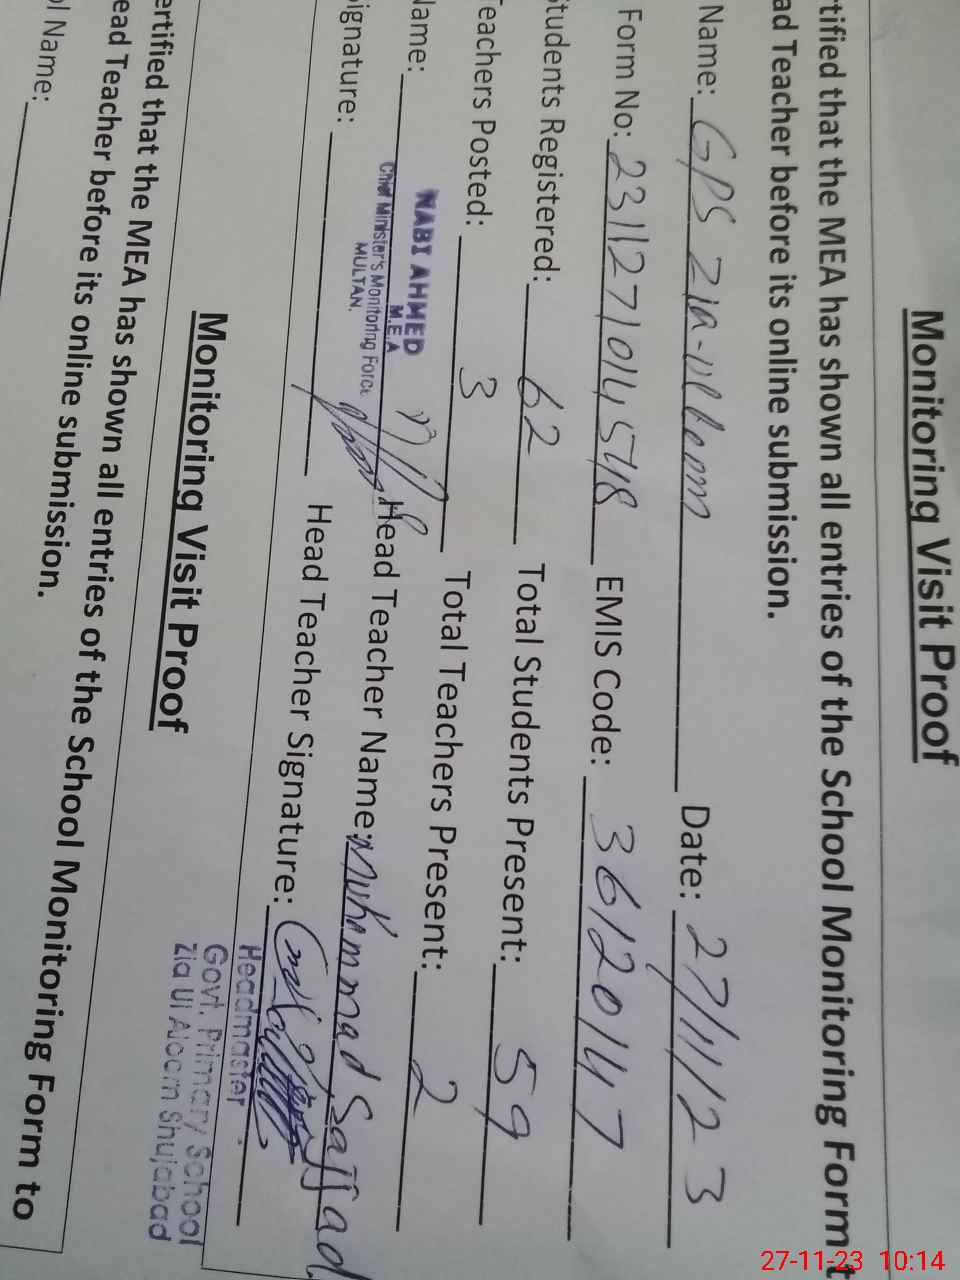 Monitoring Visit Proof
tified that the MEA has shown all entries of the School Monitoring Form t
ad Teacher before its online submission.
Name: GPS Zia-ul Aloom Date: 27/11/23
Form No: EMIS Code: 36120147
tudents Registered: 62 Total Students Present: 59
eachers Posted: 3 Total Teachers Present: 2
Name: NABI AHMED Head Teacher Name: Muhammad Sajjad
M.E.A
Chief Minister's Monitoring Force
MULTAN.
ignature: Head Teacher Signature:
Headmaster
Govt. Primary School
Zia Ul Aloom Shujabad
Monitoring Visit Proof
ertified that the MEA has shown all entries of the School Monitoring Form to
ead Teacher before its online submission.
ol Name:
27-11-23 10:14